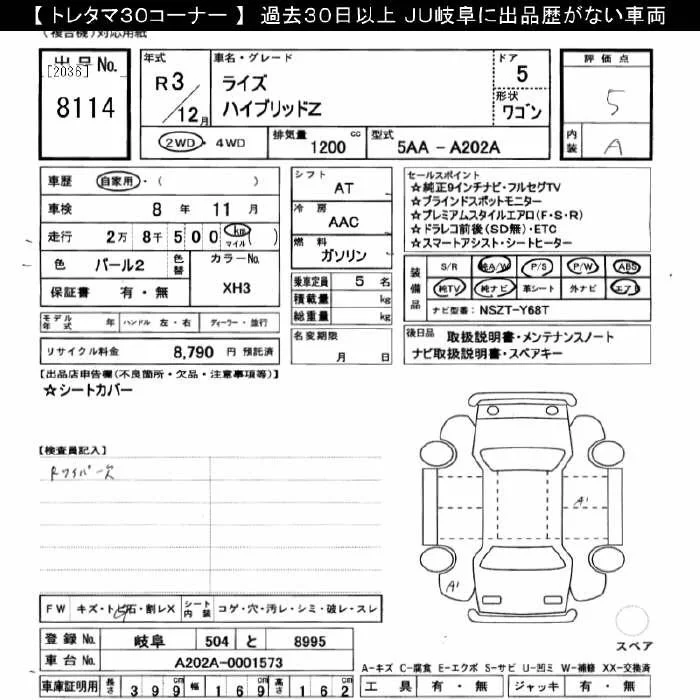 【 トレタマ30コーナー 】 過去30日以上 JU岐阜に出品歴がない車両
(複合機)対応用紙
出品No.
[2036]
8114
年式
R 3 / 12月
車名・グレード
ライズ
ハイブリッドZ
ドア
5
形状
ワゴン
2WD・4WD
排気量
1200 cc
型式
5AA - A202A
評価点
5
内装
A
車歴 自家用・( )
車検 8 年 11 月
走行 2万 8千 500 km マイル ( )
色 パール2 色替
カラーNo.
XH3
保証書 有・無
シフト
AT
冷房
AAC
燃料
ガソリン
乗車定員 5 名
積載量 kg
総重量 kg
セールスポイント
☆純正9インチナビ・フルセグTV
☆ブラインドスポットモニター
☆プレミアムスタイルエアロ(F・S・R)
☆ドラレコ前後(SD無)・ETC
☆スマートアシスト・シートヒーター
装備品
S/R 純A/W P/S P/W ABS
純TV 純ナビ 革シート 外ナビ エアB
ナビ型番: NSZT-Y68T
モデル年式 年 ハンドル 左・右 ディーラー・並行
リサイクル料金 8,790 円 預託済
名変期限
月 日
後日品 取扱説明書・メンテナンスノート
ナビ取扱説明書・スペアキー
【出品店申告欄(不良箇所・欠品・注意事項等)】
☆シートカバー
【検査員記入】
Rワイパー欠
A1
A1
FW キズ・トビ石・割レX
シート内装 コゲ・穴・汚レ・シミ・破レ・スレ
スペア
登録No. 岐阜 504 と 8995
車台No. A202A-0001573
A-キズ C-腐食 E-エクボ S-サビ U-凹ミ W-補修 XX-交換済
車庫証明用 長さ 399 cm 幅 169 cm 高さ 162 cm
工具 有・無 ジャッキ 有・無